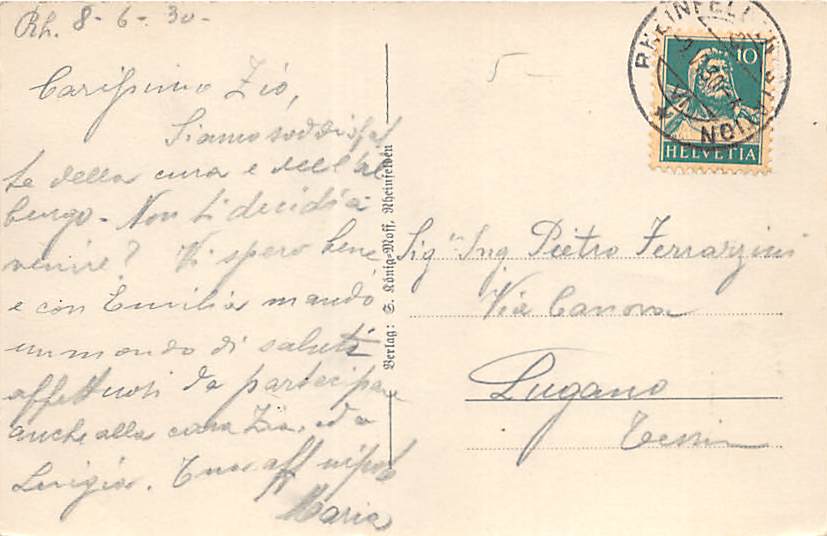 Rh. 8-6-30-
Carissimo Zio,
Siamo soddisfat
te della cura e dell'al
bergo. Non ti decidi a
venire? Vi spero bene
e con Emilia mando
un mondo di saluti
affettuosi da partecipare
anche alla cara Zia, ed a
Luigia. Tua aff nipote
Maria
Verlag: S. König-Moff, Rheinfelden
5-
10
HELVETIA
Sigr Ing Pietro Ferrazzini
Via Canova
Lugano
Tessin